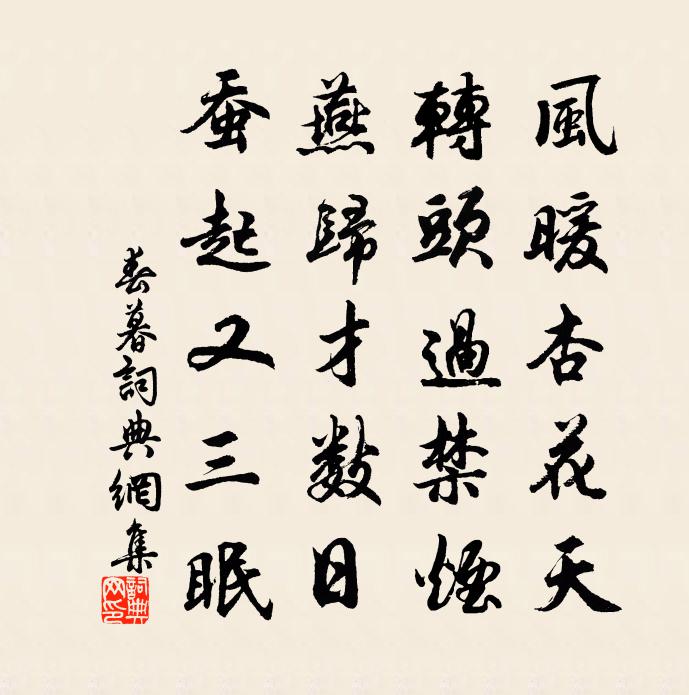 風暖杏花天
轉頭過禁煙
燕歸才數日
蚕起又三眠
春暮詞典網集
詞典網印